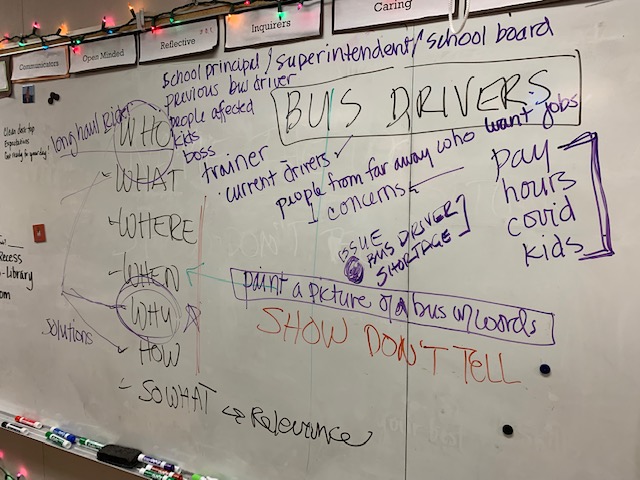 Communicators
Open Minded
Reflective
Inquirers
Caring
School principal / superintendent / school board
previous bus driver
people affected
kids
boss
trainer
current drivers ✓
people from far away who want jobs
concerns
BUS DRIVERS
long haul Rider
WHO
WHAT
WHERE
WHEN
WHY
HOW
SO WHAT ↔ Relevance
solutions
pay
hours
covid
kids
ISSUE
BUS DRIVER
SHORTAGE
paint a picture of a bus w/ words
SHOW DON'T TELL
Clean desktop
Expectations
Get ready to your day!
Recess
-Library